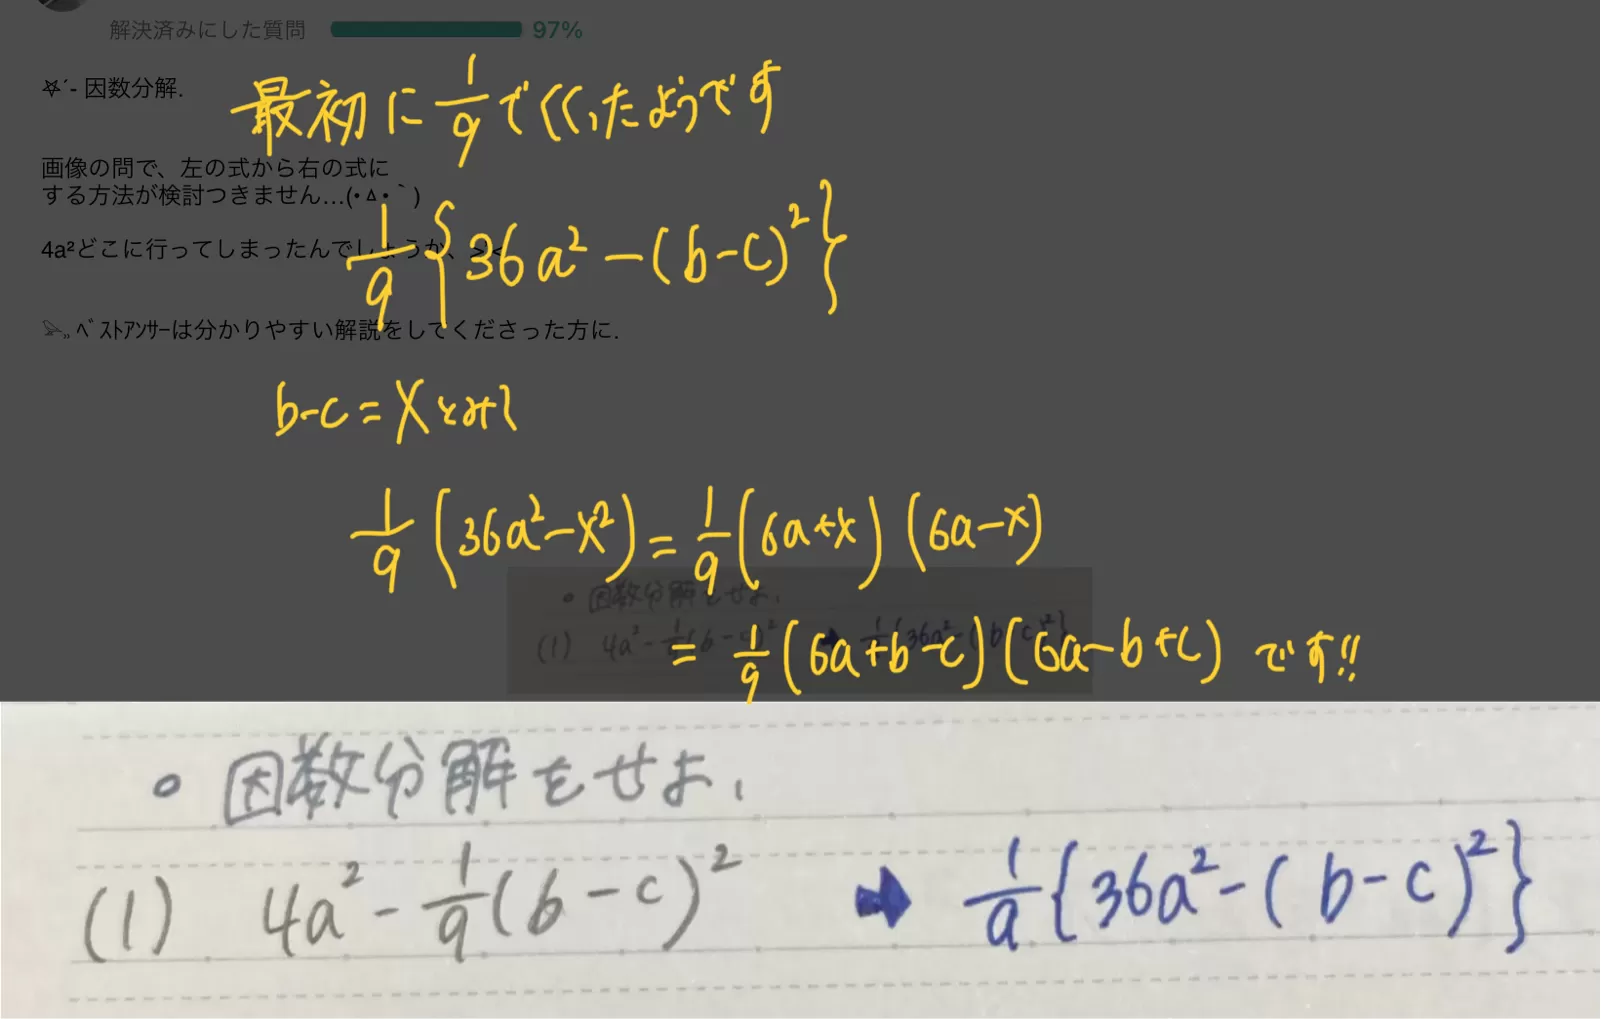 解決済みにした質問 97%
因数分解.
最初に 1/9 でくくったようです
画像の問で、左の式から右の式に
する方法が検討つきません…(•́ㅿ•̀)
1/9{36a²-(b-c)²}
4a²どこに行ってしまったんでしょうか、><
ﾍﾞｽﾄｱﾝｻｰは分かりやすい解説をしてくださった方に.
b-c=Xとおく
1/9(36a²-x²)=1/9(6a+x)(6a-x)
=1/9(6a+b-c)(6a-b+c) です!!
・因数分解をせよ.
(1) 4a²-1/9(b-c)² ➡ 1/9{36a²-(b-c)²}
・因数分解をせよ.
(1) 4a²-1/9(b-c)² ➡ 1/9{36a²-(b-c)²}